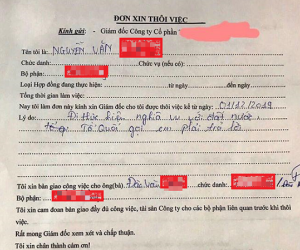 ĐƠN XIN THÔI VIỆC
Kính gửi: - Giám đốc Công ty Cổ phần
Tên tôi là: NGUYEN VĂN
Chức danh: Chức vụ (nếu có):
Bộ phận:
Loại Hợp đồng đang thực hiện: từ ngày đến ngày
Tổng thời gian làm việc:
Nay tôi làm đơn này kính xin Giám đốc cho tôi được thôi việc kể từ ngày: 01/12/2019
Lý do: Đi thực hiện nghĩa vụ với đất nước,
Tổ Quốc gọi em phải trả lời
Tôi xin bàn giao công việc cho ông(bà): Đào Văn chức danh:
Bộ phận:
Tôi xin cam đoan bàn giao đầy đủ công việc, tài sản Công ty cho các bộ phận liên quan trước khi thôi
việc.
Rất mong Giám đốc xem xét và chấp thuận.
Tôi xin chân thành cảm ơn!